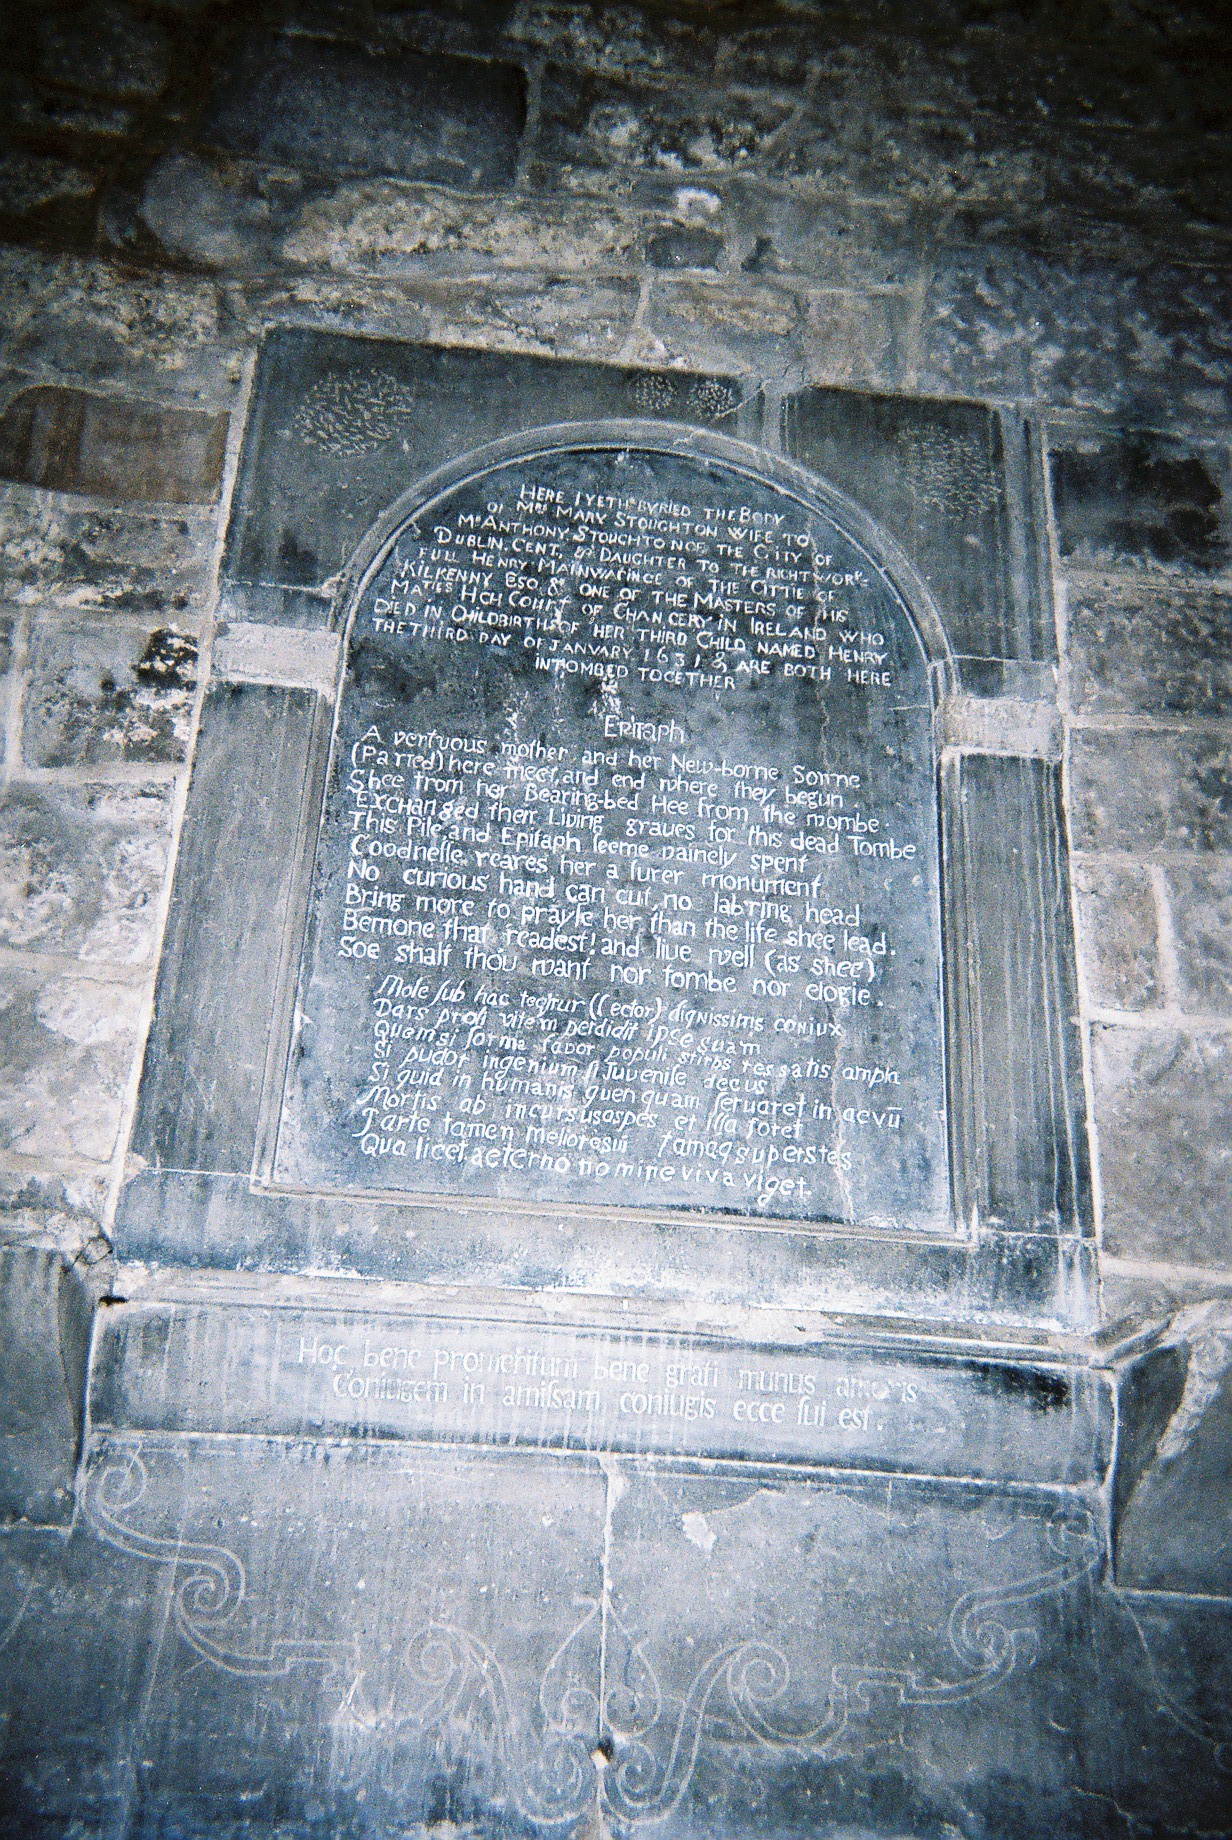 HERE LYETH BVRIED THE BODY
OF MRS MARY STOUGHTON WIFE TO
MR ANTHONY STOUGHTON OF THE CITY OF
DUBLIN. GENT. & DAUGHTER TO THE RIGHT WOR-
FULL HENRY MAINWARINGE OF THE CITTIE OF
KILKENNY ESQ. & ONE OF THE MASTERS OF HIS
MATIES HGH COURT OF CHANCERY IN IRELAND WHO
DIED IN CHILDBIRTH OF HER THIRD CHILD NAMED HENRY
THE THIRD DAY OF JANVARY 1631 & ARE BOTH HERE
INTOMBED TOGETHER
Epitaph
A vertuous mother and her New-borne Sonne
(Parted) here meet, and end where they begun.
Shee from her Bearing-bed Hee from the wombe.
Exchanged their Living graues for this dead Tombe
This Pile and Epitaph seeme vainely spent
Goodnesse reares her a surer monument
No curious hand can cut, no labring head
Bring more to prayse her than the life shee lead.
Bemone that readest! and liue well (as shee)
Soe shalt thou want nor tombe nor elogie.
Mole sub hac tegitur (Lector) dignissima coniux
Dars proli vitem perdidit ipse suam
Quem si forma favor populi stirps res satis ampla
Si pudor ingenium si Juvenile decus
Si quid in humanis quenquam seruaret in aevū
Mortis ab incursu sospes et illa foret
Parte tamen meliore sui famaq superstes
Qua licet aeterno nomine viva viget.
Hoc bene promeritum bene grati munus amoris
Coniugem in amissam coniugis ecce sui est.